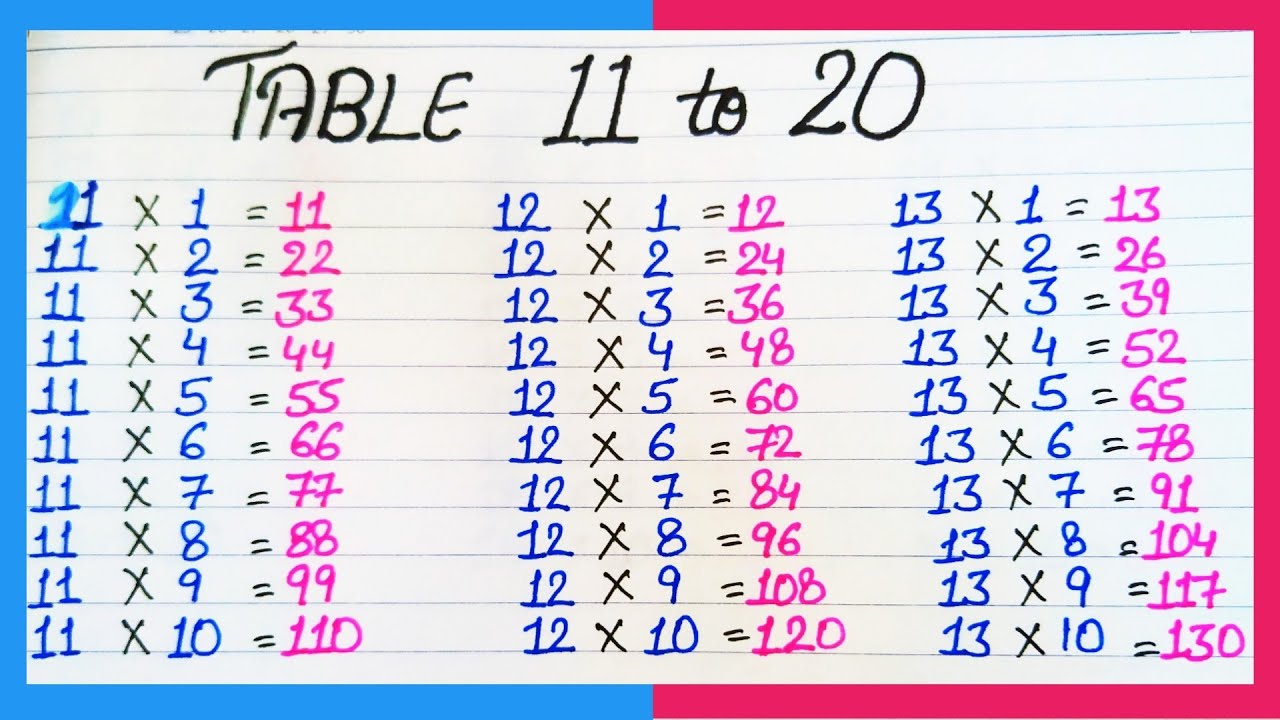 TABLE 11 to 20
11 X 1 = 11 12 X 1 = 12 13 X 1 = 13
11 X 2 = 22 12 X 2 = 24 13 X 2 = 26
11 X 3 = 33 12 X 3 = 36 13 X 3 = 39
11 X 4 = 44 12 X 4 = 48 13 X 4 = 52
11 X 5 = 55 12 X 5 = 60 13 X 5 = 65
11 X 6 = 66 12 X 6 = 72 13 X 6 = 78
11 X 7 = 77 12 X 7 = 84 13 X 7 = 91
11 X 8 = 88 12 X 8 = 96 13 X 8 = 104
11 X 9 = 99 12 X 9 = 108 13 X 9 = 117
11 X 10 = 110 12 X 10 = 120 13 X 10 = 130